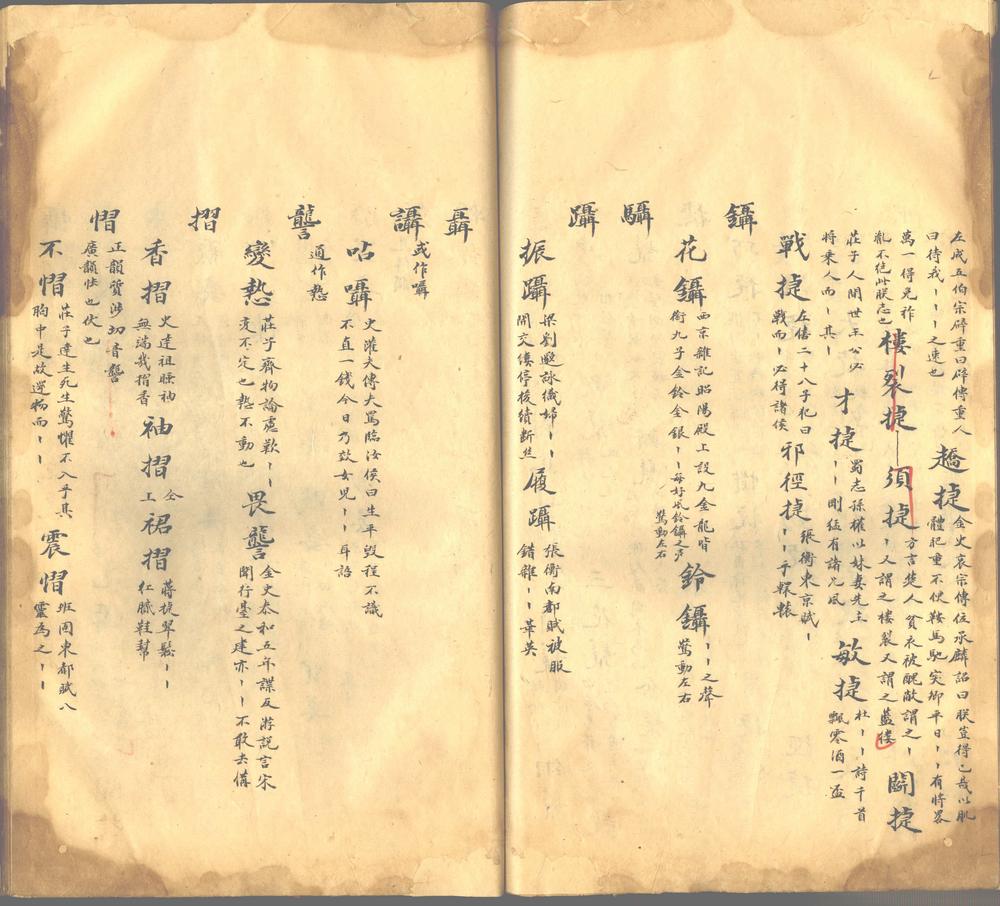 左成五伯宗辟重曰辟傳重人
曰待我丨丨丨之速也
趫捷
金史哀宗傳伍承麟詔曰朕豈得已哉以肌
體肥重不便鞍馬馳突卿平日丨丨有將畧
萬一得免祚
胤不絕此朕志也
樓裂捷
須捷
方言楚人貧衣被醜敝謂之丨
丨又謂之樓裂又謂之藍褸
鬬捷
莊子人間世王公必
將乘人而丨其丨
才捷
蜀志孫權以妹妻先主
丨丨剛猛有諸兄風
敏捷
杜丨丨詩千首
飄零酒一盃
戰捷
左僖二十八子犯曰
戰而丨必得諸侯
邪徑捷
張衡東京賦丨
丨丨乎轘轅
鑷
花鑷
西京雜記昭陽殿上設九金龍皆
銜九子金鈴金銀丨丨每好風鈴鑷之声
驚動左右
鈴鑷
丨丨之聲
驚動左右
躡
振躡
梁劉邈詠織婦丨丨
開交縷停梭續斷丝
履躡
張衡南都賦被服
錯雜丨丨華英
聶
讘
或作囁
呫囁
史灌夫傳夫罵臨汝侯曰生平毀程不識
不直一錢今日乃效女兒丨丨耳語
讋
通作慹
變慹
莊子齊物論慮歎丨丨
変不定也慹不動也
畏讋
金史泰和五年諜反游說言宋
聞行臺之建亦丨丨不敢去備
摺
香摺
史達祖睡袖
無端我摺香
袖摺
仝
上
裙摺
蔣捷翠鬆丨丨
紅膩鞋幫
慴
正韻質涉切音讋
廣韻怯也伏也
不慴
莊子達生死生驚懼不入乎其
胸中是故遻物而丨丨
震慴
班固東都賦八
靈為之丨丨